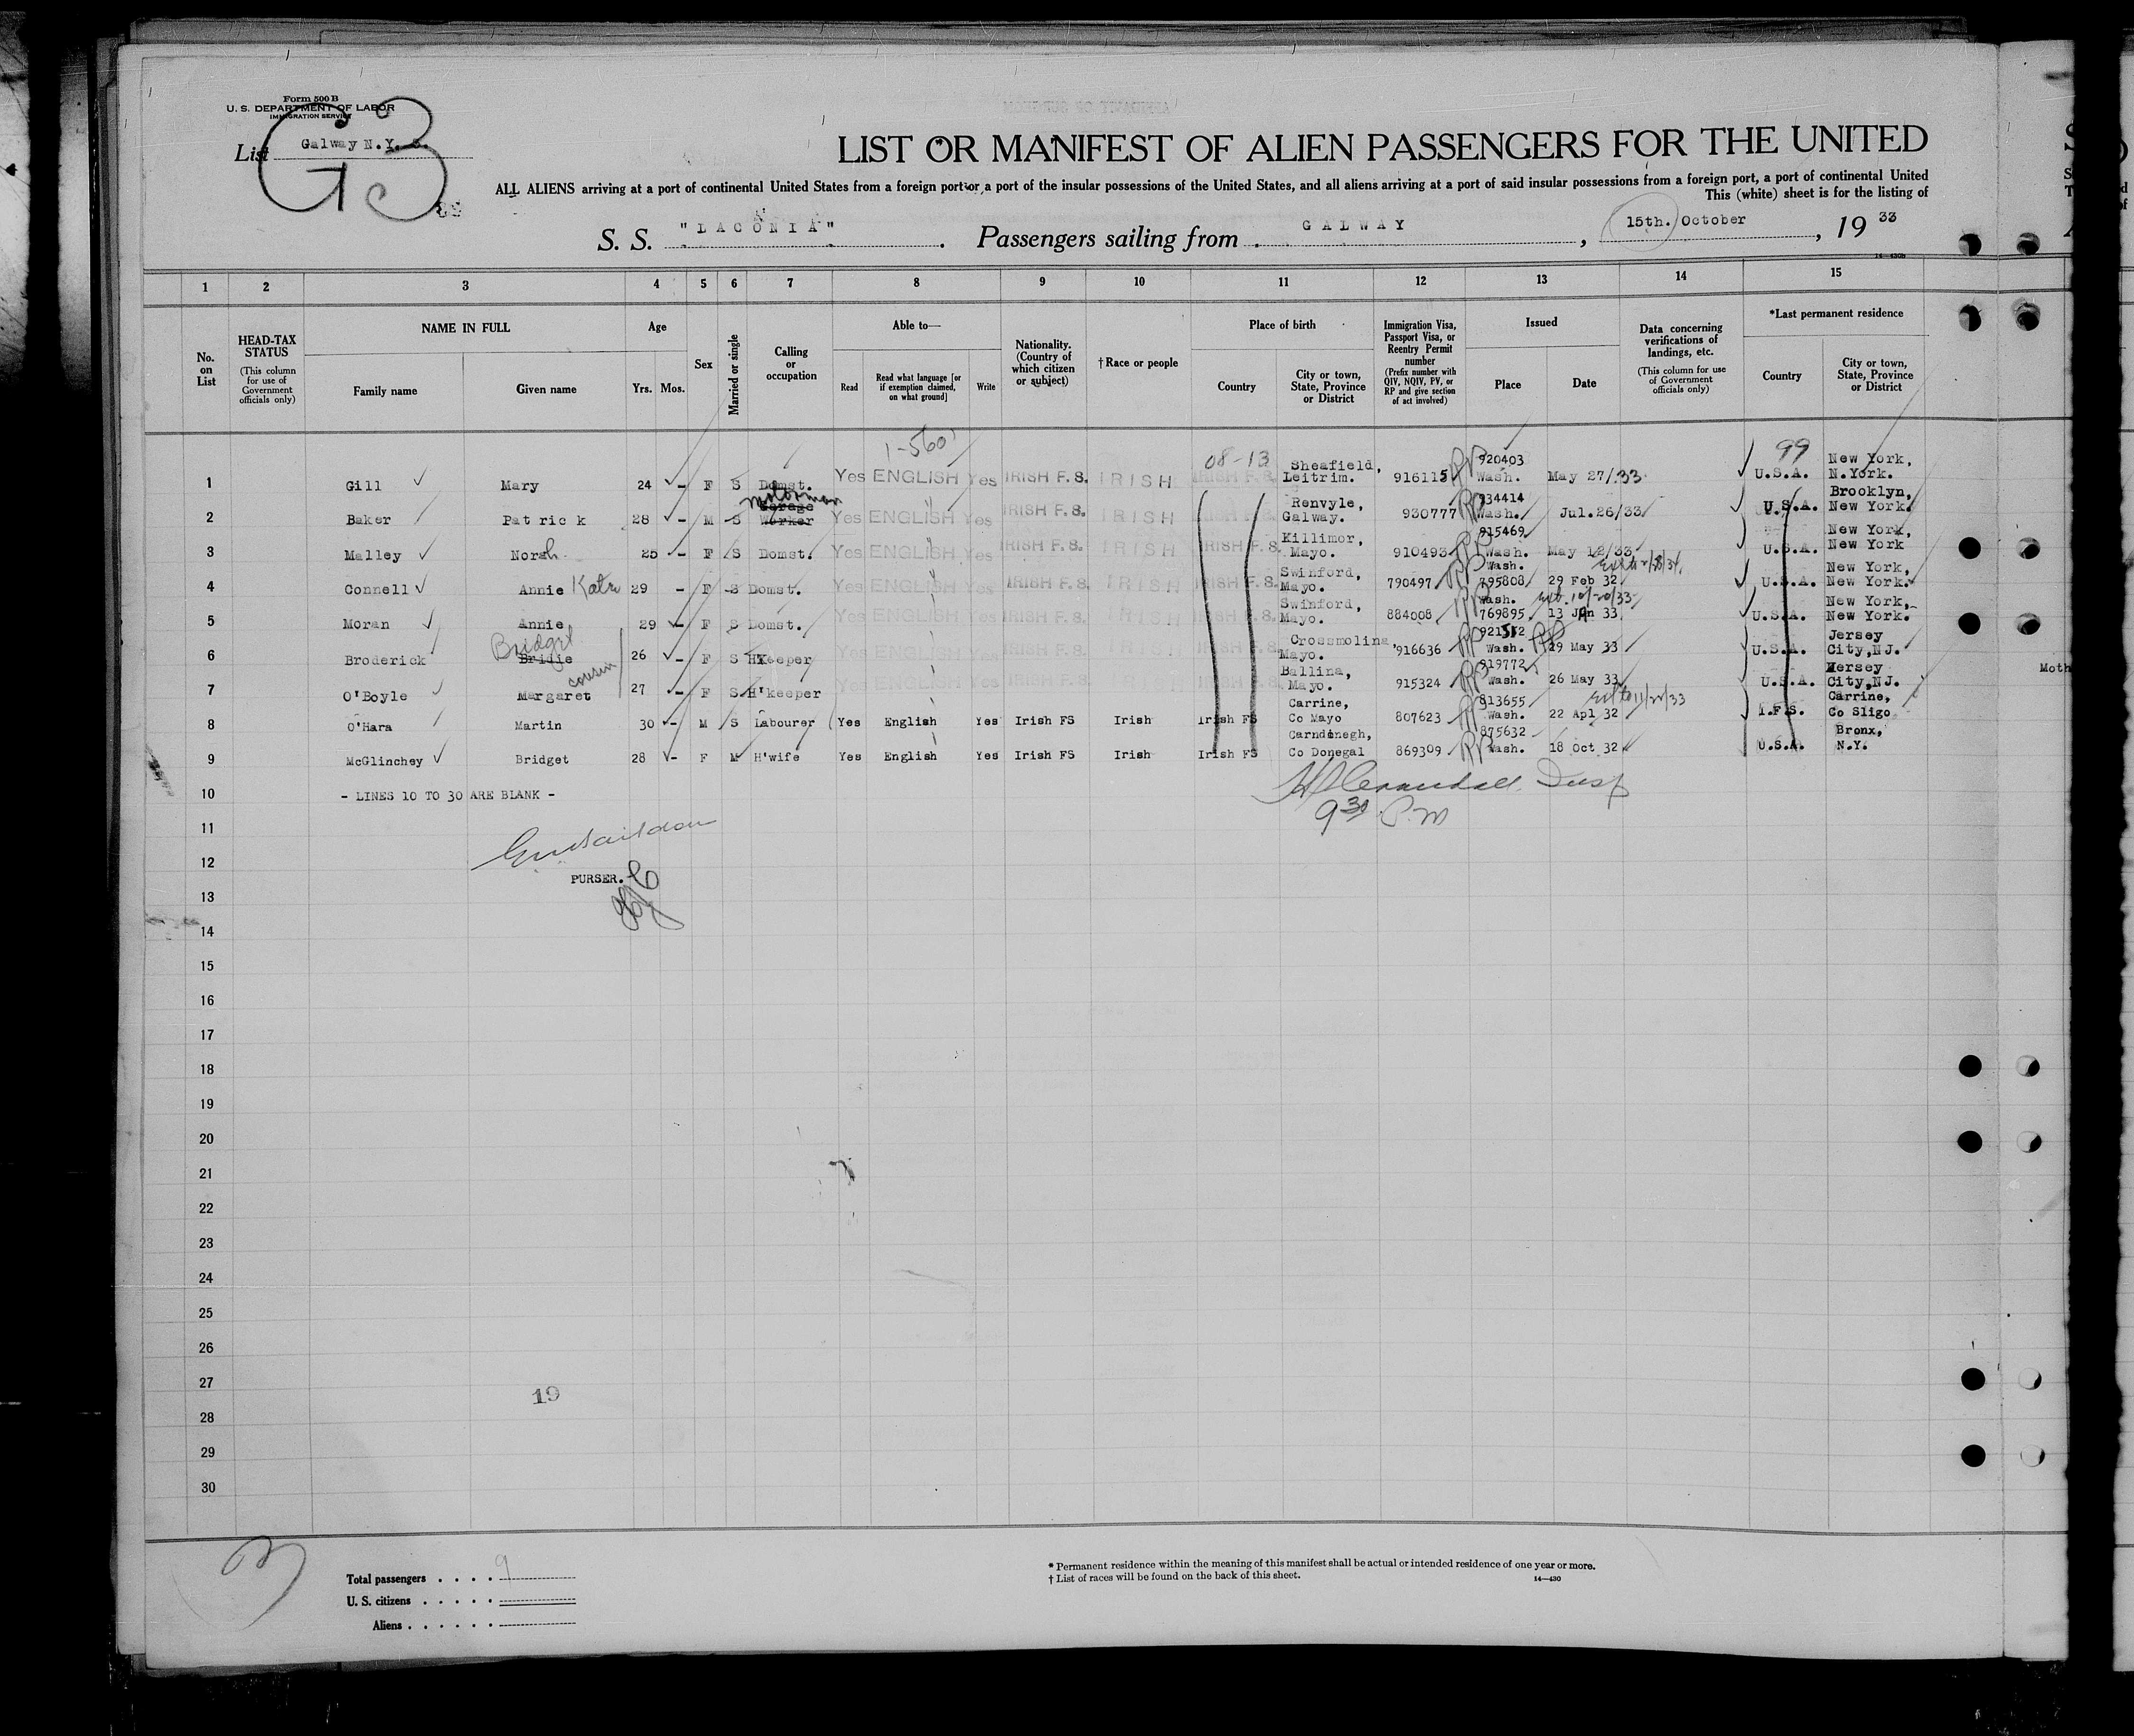 Form 500 B
U. S. DEPARTMENT OF LABOR
IMMIGRATION SERVICE
List Galway N.Y. 3.
G 3
LIST OR MANIFEST OF ALIEN PASSENGERS FOR THE UNITED
ALL ALIENS arriving at a port of continental United States from a foreign port or a port of the insular possessions of the United States, and all aliens arriving at a port of said insular possessions from a foreign port, a port of continental United
This (white) sheet is for the listing of
S. S. "LACONIA". Passengers sailing from GALWAY, 15th. October, 19 33
14—430b
1 2 3 4 5 6 7 8 9 10 11 12 13 14 15
No. on List
HEAD-TAX STATUS (This column for use of Government officials only)
NAME IN FULL Family name Given name
Age Yrs. Mos.
Sex
Married or single
Calling or occupation
Able to— Read Read what language [or if exemption claimed, on what ground] Write
Nationality. (Country of which citizen or subject)
†Race or people
Place of birth Country City or town, State, Province or District
Immigration Visa, Passport Visa, or Reentry Permit number (Prefix number with QIV, NQIV, PV, or RP and give section of act involved)
Issued Place Date
Data concerning verifications of landings, etc. (This column for use of Government officials only)
*Last permanent residence Country City or town, State, Province or District
1-560 08-13 99
1 Gill Mary 24 - F S Domst. Yes ENGLISH Yes IRISH F.S. IRISH IRISH F.S. Sheafield, Leitrim. 916115 RP 920403 Wash. May 27/33 U.S.A. New York, N.York.
2 Baker Patrick 28 - M S Garage Worker Motorman Yes ENGLISH Yes IRISH F.S. IRISH Renvyle, Galway. 930777 RP 934414 Wash. Jul.26/33 U.S.A. Brooklyn, New York.
3 Malley Norah 25 - F S Domst. Yes ENGLISH Yes IRISH F.S. IRISH IRISH F.S. Killimor, Mayo. 910493 RP 915469 Wash. May 12/33 U.S.A. New York, New York
4 Connell Annie Kate 29 - F S Domst. Yes ENGLISH Yes IRISH F.S. IRISH IRISH F.S. Swinford, Mayo. 790497 RP Wash. 795808 29 Feb 32 U.S.A. New York, New York.
5 Moran Annie 29 - F S Domst. Yes ENGLISH Yes IRISH F.S. IRISH IRISH F.S. Swinford, Mayo. 884008 RP Wash. 769895 13 Jan 33 U.S.A. New York, New York.
6 Broderick Bridie Bridget 26 - F S H'Keeper Yes ENGLISH Yes IRISH F.S. IRISH IRISH F.S. Crossmolina, Mayo. 916636 RP Wash. 29 May 33 U.S.A. Jersey City,NJ.
cousin
7 O'Boyle Margaret 27 - F S H'keeper Yes ENGLISH Yes IRISH F.S. IRISH IRISH F.S. Ballina, Mayo. 915324 RP 919772 Wash. 26 May 33 U.S.A. Jersey City,NJ.
8 O'Hara Martin 30 - M S Labourer Yes English Yes Irish FS Irish Irish FS Carrine, Co Mayo 807623 RP 813655 Wash. 22 Apl 32 I.F.S. Carrine, Co Sligo
9 McGlinchey Bridget 28 - F M H'wife Yes English Yes Irish FS Irish Irish FS Carndonegh, Co Donegal 869309 RP 875632 Wash. 18 Oct 32 U.S.A. Bronx, N.Y.
10 - LINES 10 TO 30 ARE BLANK -
9 30 P.M
11
12
PURSER.
13
14
15
16
17
18
19
20
21
22
23
24
25
26
27
19
28
29
30
Total passengers . . . . 9
U. S. citizens . . . . .
Aliens . . . . . .
* Permanent residence within the meaning of this manifest shall be actual or intended residence of one year or more.
† List of races will be found on the back of this sheet.
14—430
Moth